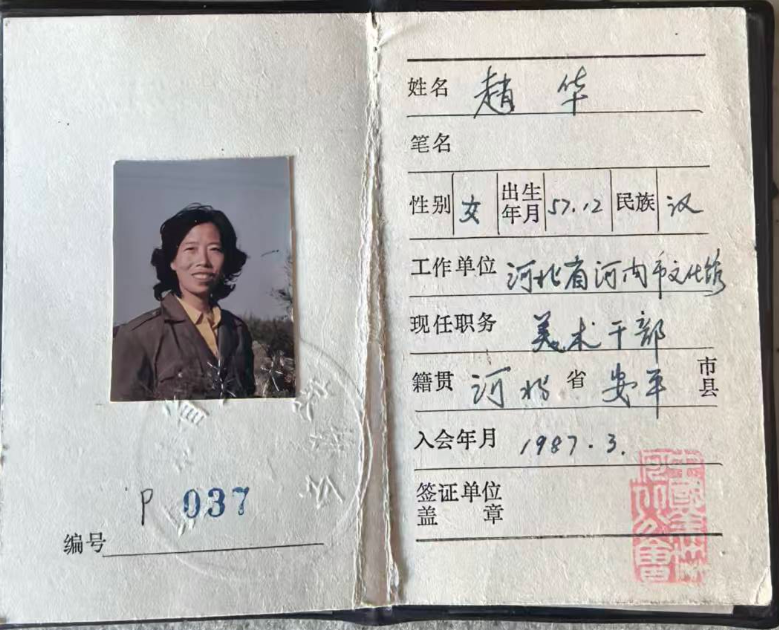 P 037
编号
姓名 赵 华
笔名
性别 女 出生年月 57.12 民族 汉
工作单位 河北省河间市文化馆
现任职务 美术干部
籍贯 河北 省 安平 市县
入会年月 1987.3.
签证单位
盖 章